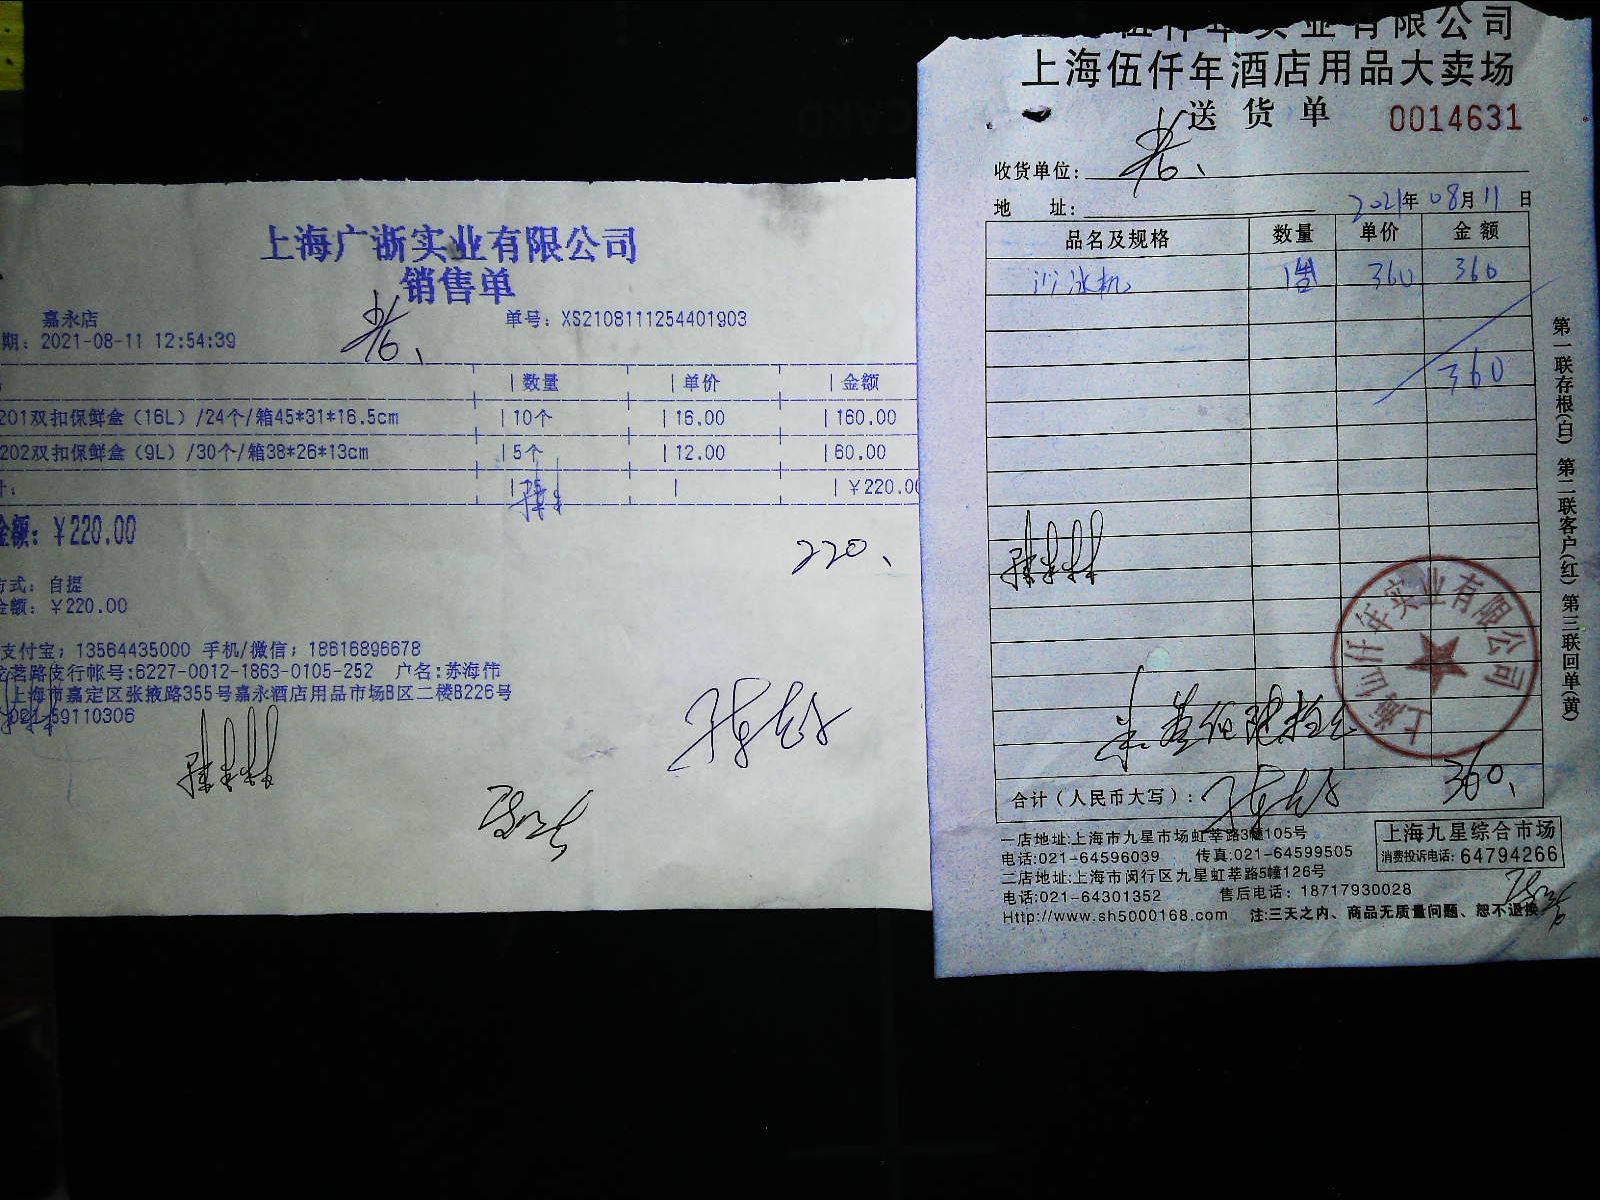 上海广浙实业有限公司
销售单
嘉永店
单号：XS2108111254401903
期：2021-08-11 12:54:39
数量 单价 金额
201双扣保鲜盒（16L）/24个/箱45*31*16.5cm 10个 16.00 160.00
202双扣保鲜盒（9L）/30个/箱38*26*13cm 5个 12.00 60.00
计： 15 ￥220.00
金额：￥220.00
220、
方式：自提
金额：￥220.00
支付宝：13564435000 手机/微信：18616896678
路支行帐号:6227-0012-1863-0105-252 户名:苏海伟
上海市嘉定区张掖路355号嘉永酒店用品市场B区二楼B226号
021-59110306
伍仟年实业有限公司
上海伍仟年酒店用品大卖场
送货单 0014631
收货单位：
地 址： 2021年08月11日
品名及规格 数量 单价 金额
冰机 1 360 360
360
第一联存根(白) 第二联客户(红) 第三联回单(黄)
上海伍仟年实业有限公司
合计（人民币大写）： 360、
一店地址:上海市九星市场虹莘路3幢105号
电话:021-64596039 传真:021-64599505
二店地址:上海市闵行区九星虹莘路5幢126号
电话:021-64301352 售后电话：18717930028
Http://www.sh5000168.com 注:三天之内、商品无质量问题、恕不退换
上海九星综合市场
消费投诉电话：64794266